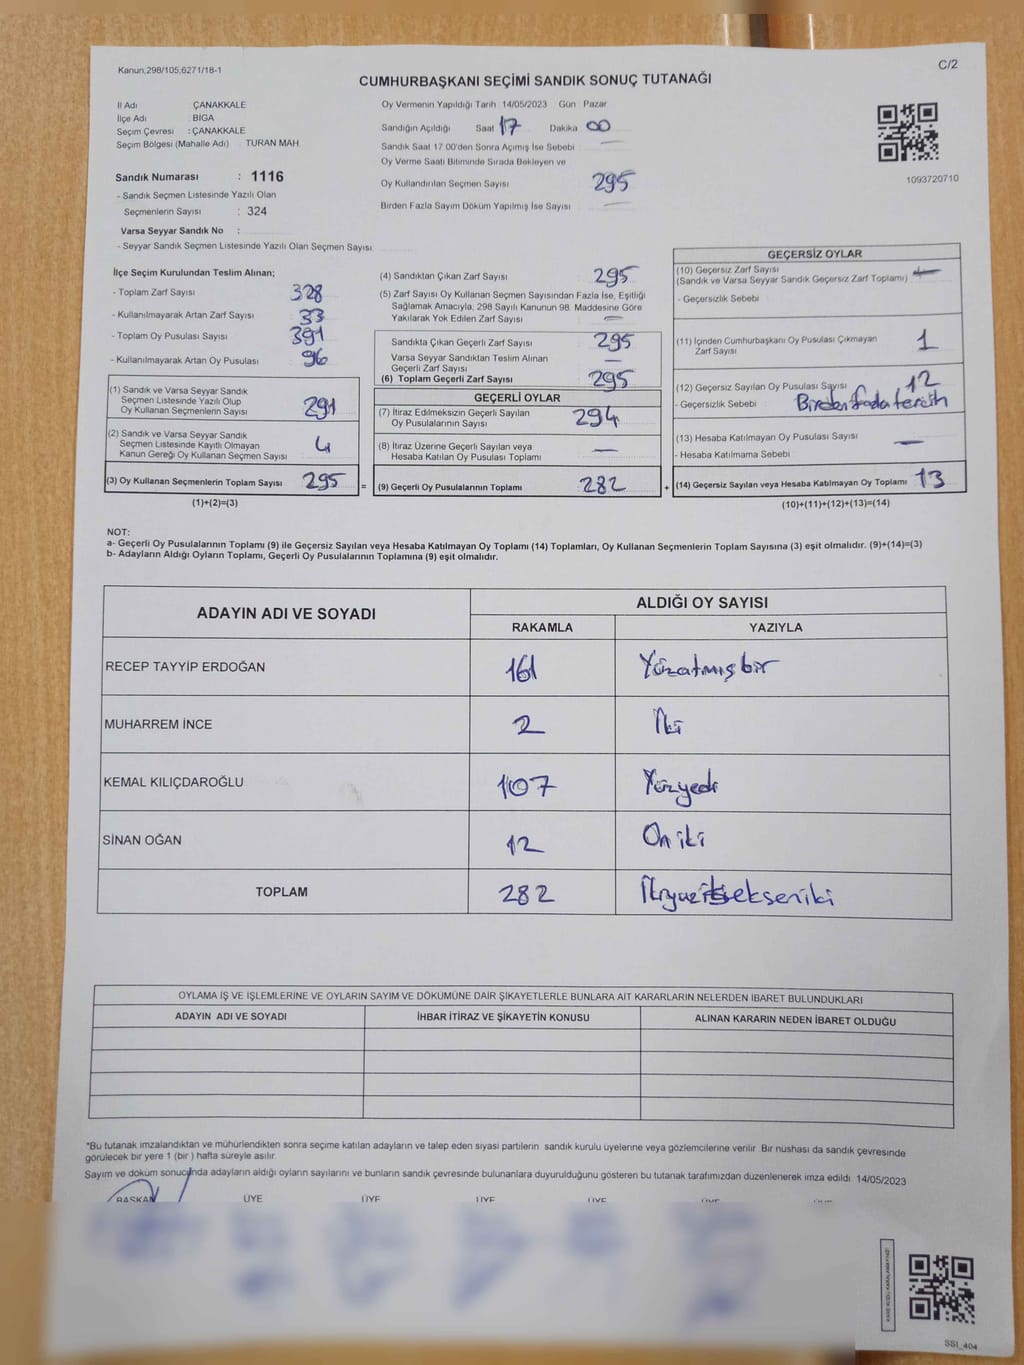 Kanun;298/105,6271/18-1
C/2
CUMHURBAŞKANI SEÇİMİ SANDIK SONUÇ TUTANAĞI
İl Adı ÇANAKKALE
İlçe Adı : BİGA
Seçim Çevresi : ÇANAKKALE
Seçim Bölgesi (Mahalle Adı) : TURAN MAH.
Sandık Numarası : 1116
- Sandık Seçmen Listesinde Yazılı Olan
Seçmenlerin Sayısı : 324
Varsa Seyyar Sandık No :
- Seyyar Sandık Seçmen Listesinde Yazılı Olan Seçmen Sayısı:
Oy Vermenin Yapıldığı Tarih 14/05/2023 Gün Pazar
Sandığın Açıldığı Saat 17 Dakika 00
Sandık Saat 17.00'den Sonra Açımış İse Sebebi —
Oy Verme Saati Bitiminde Sırada Bekleyen ve
Oy Kullandırılan Seçmen Sayısı 295
Birden Fazla Sayım Döküm Yapılmış İse Sayısı —
1093720710
İlçe Seçim Kurulundan Teslim Alınan;
- Toplam Zarf Sayısı 328
- Kullanılmayarak Artan Zarf Sayısı 33
- Toplam Oy Pusulası Sayısı 391
- Kullanılmayarak Artan Oy Pusulası 96
(1) Sandık ve Varsa Seyyar Sandık
Seçmen Listesinde Yazılı Olup
Oy Kullanan Seçmenlerin Sayısı 291
(2) Sandık ve Varsa Seyyar Sandık
Seçmen Listesinde Kayıtlı Olmayan
Kanun Gereği Oy Kullanan Seçmen Sayısı 4
(3) Oy Kullanan Seçmenlerin Toplam Sayısı 295 =
(1)+(2)=(3)
(4) Sandıktan Çıkan Zarf Sayısı 295
(5) Zarf Sayısı Oy Kullanan Seçmen Sayısından Fazla İse, Eşitliği
Sağlamak Amacıyla, 298 Sayılı Kanunun 98. Maddesine Göre
Yakılarak Yok Edilen Zarf Sayısı —
Sandıkta Çıkan Geçerli Zarf Sayısı 295
Varsa Seyyar Sandıktan Teslim Alınan
Geçerli Zarf Sayısı —
(6) Toplam Geçerli Zarf Sayısı 295
GEÇERLİ OYLAR
(7) İtiraz Edilmeksizin Geçerli Sayılan
Oy Pusulalarının Sayısı 294
(8) İtiraz Üzerine Geçerli Sayılan veya
Hesaba Katılan Oy Pusulası Toplamı —
(9) Geçerli Oy Pusulalarının Toplamı 282 +
GEÇERSİZ OYLAR
(10) Geçersiz Zarf Sayısı
(Sandık ve Varsa Seyyar Sandık Geçersiz Zarf Toplamı) —
- Geçersizlik Sebebi
(11) İçinden Cumhurbaşkanı Oy Pusulası Çıkmayan
Zarf Sayısı 1
(12) Geçersiz Sayılan Oy Pusulası Sayısı 12
- Geçersizlik Sebebi Birden fazla tercih
(13) Hesaba Katılmayan Oy Pusulası Sayısı —
- Hesaba Katılmama Sebebi
(14) Geçersiz Sayılan veya Hesaba Katılmayan Oy Toplamı 13
(10)+(11)+(12)+(13)=(14)
NOT:
a- Geçerli Oy Pusulalarının Toplamı (9) ile Geçersiz Sayılan veya Hesaba Katılmayan Oy Toplamı (14) Toplamları, Oy Kullanan Seçmenlerin Toplam Sayısına (3) eşit olmalıdır. (9)+(14)=(3)
b- Adayların Aldığı Oyların Toplamı, Geçerli Oy Pusulalarının Toplamına (9) eşit olmalıdır.
ADAYIN ADI VE SOYADI ALDIĞI OY SAYISI
RAKAMLA YAZIYLA
RECEP TAYYİP ERDOĞAN 161 Yüzatmışbir
MUHARREM İNCE 2 İki
KEMAL KILIÇDAROĞLU 107 Yüzyedi
SİNAN OĞAN 12 On iki
TOPLAM 282 İkiyüzseksen iki
OYLAMA İŞ VE İŞLEMLERİNE VE OYLARIN SAYIM VE DÖKÜMÜNE DAİR ŞİKAYETLERLE BUNLARA AİT KARARLARIN NELERDEN İBARET BULUNDUKLARI
ADAYIN ADI VE SOYADI İHBAR İTİRAZ VE ŞİKAYETİN KONUSU ALINAN KARARIN NEDEN İBARET OLDUĞU
*Bu tutanak imzalandıktan ve mühürlendikten sonra seçime katılan adayların ve talep eden siyasi partilerin sandık kurulu üyelerine veya gözlemcilerine verilir. Bir nüshası da sandık çevresinde
görülecek bir yere 1 (bir) hafta süreyle asılır.
Sayım ve döküm sonucunda adayların aldığı oyların sayılarını ve bunların sandık çevresinde bulunanlara duyurulduğunu gösteren bu tutanak tarafımızdan düzenlenerek imza edildi. 14/05/2023
BAŞKAN ÜYE ÜYE ÜYE ÜYE ÜYE
SSI_404